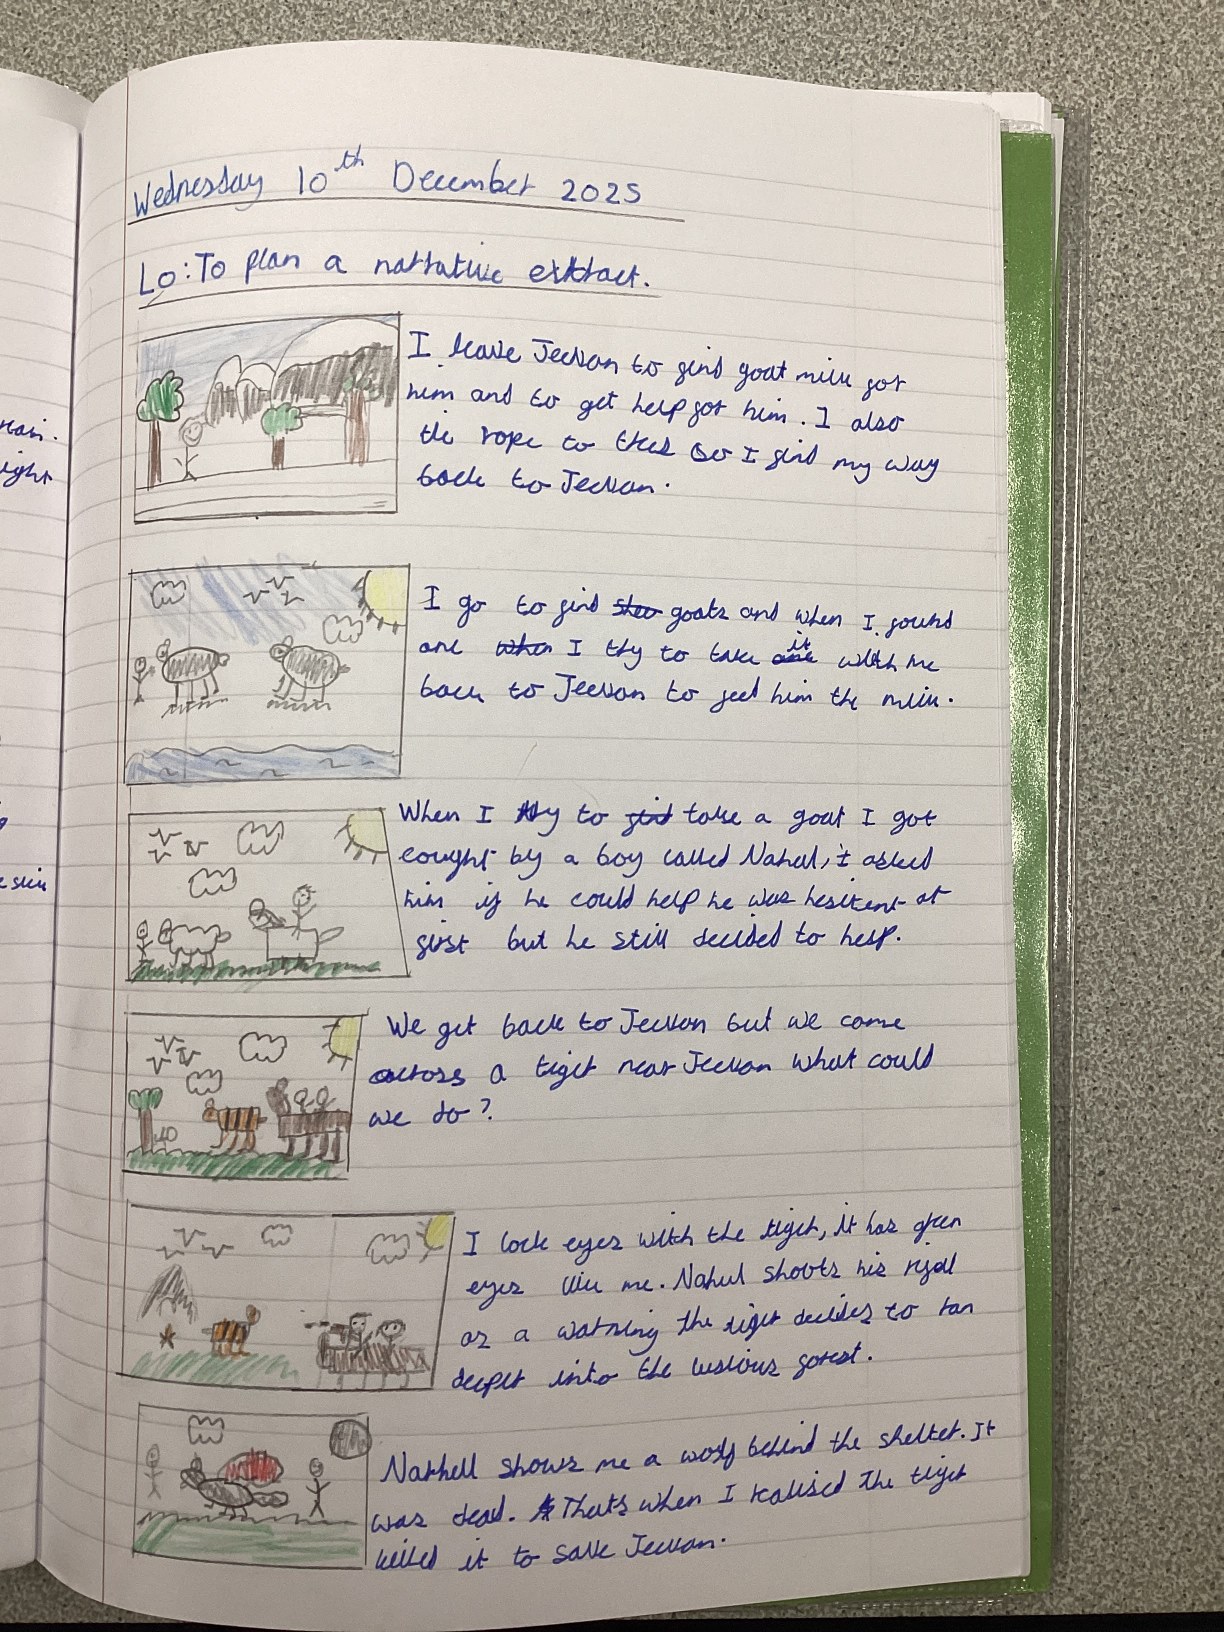 Wednesday 10th December 2025
Lo: To plan a narrative extract.
I leave Jeevan to find goat milk for
him and to get help for him. I also
tie rope to trees so I find my way
back to Jeevan.
I go to find goats and when I found
one I try to take it with me
back to Jeevan to feed him the milk.
When I try to take a goat I got
cought by a boy called Nahul, I asked
him if he could help he was hesitent at
first but he still decided to help.
We get back to Jeevan but we come
across a tiger near Jeevan what could
we do?
I lock eyes with the tiger, it has green
eyes like me. Nahul shoots his rifal
as a warning the tiger decides to ran
deeper into the lusious forest.
Narhell shows me a wolf behind the shelter. It
was dead. Thats when I realised the tiger
killed it to save Jeevan.
rain.
ight